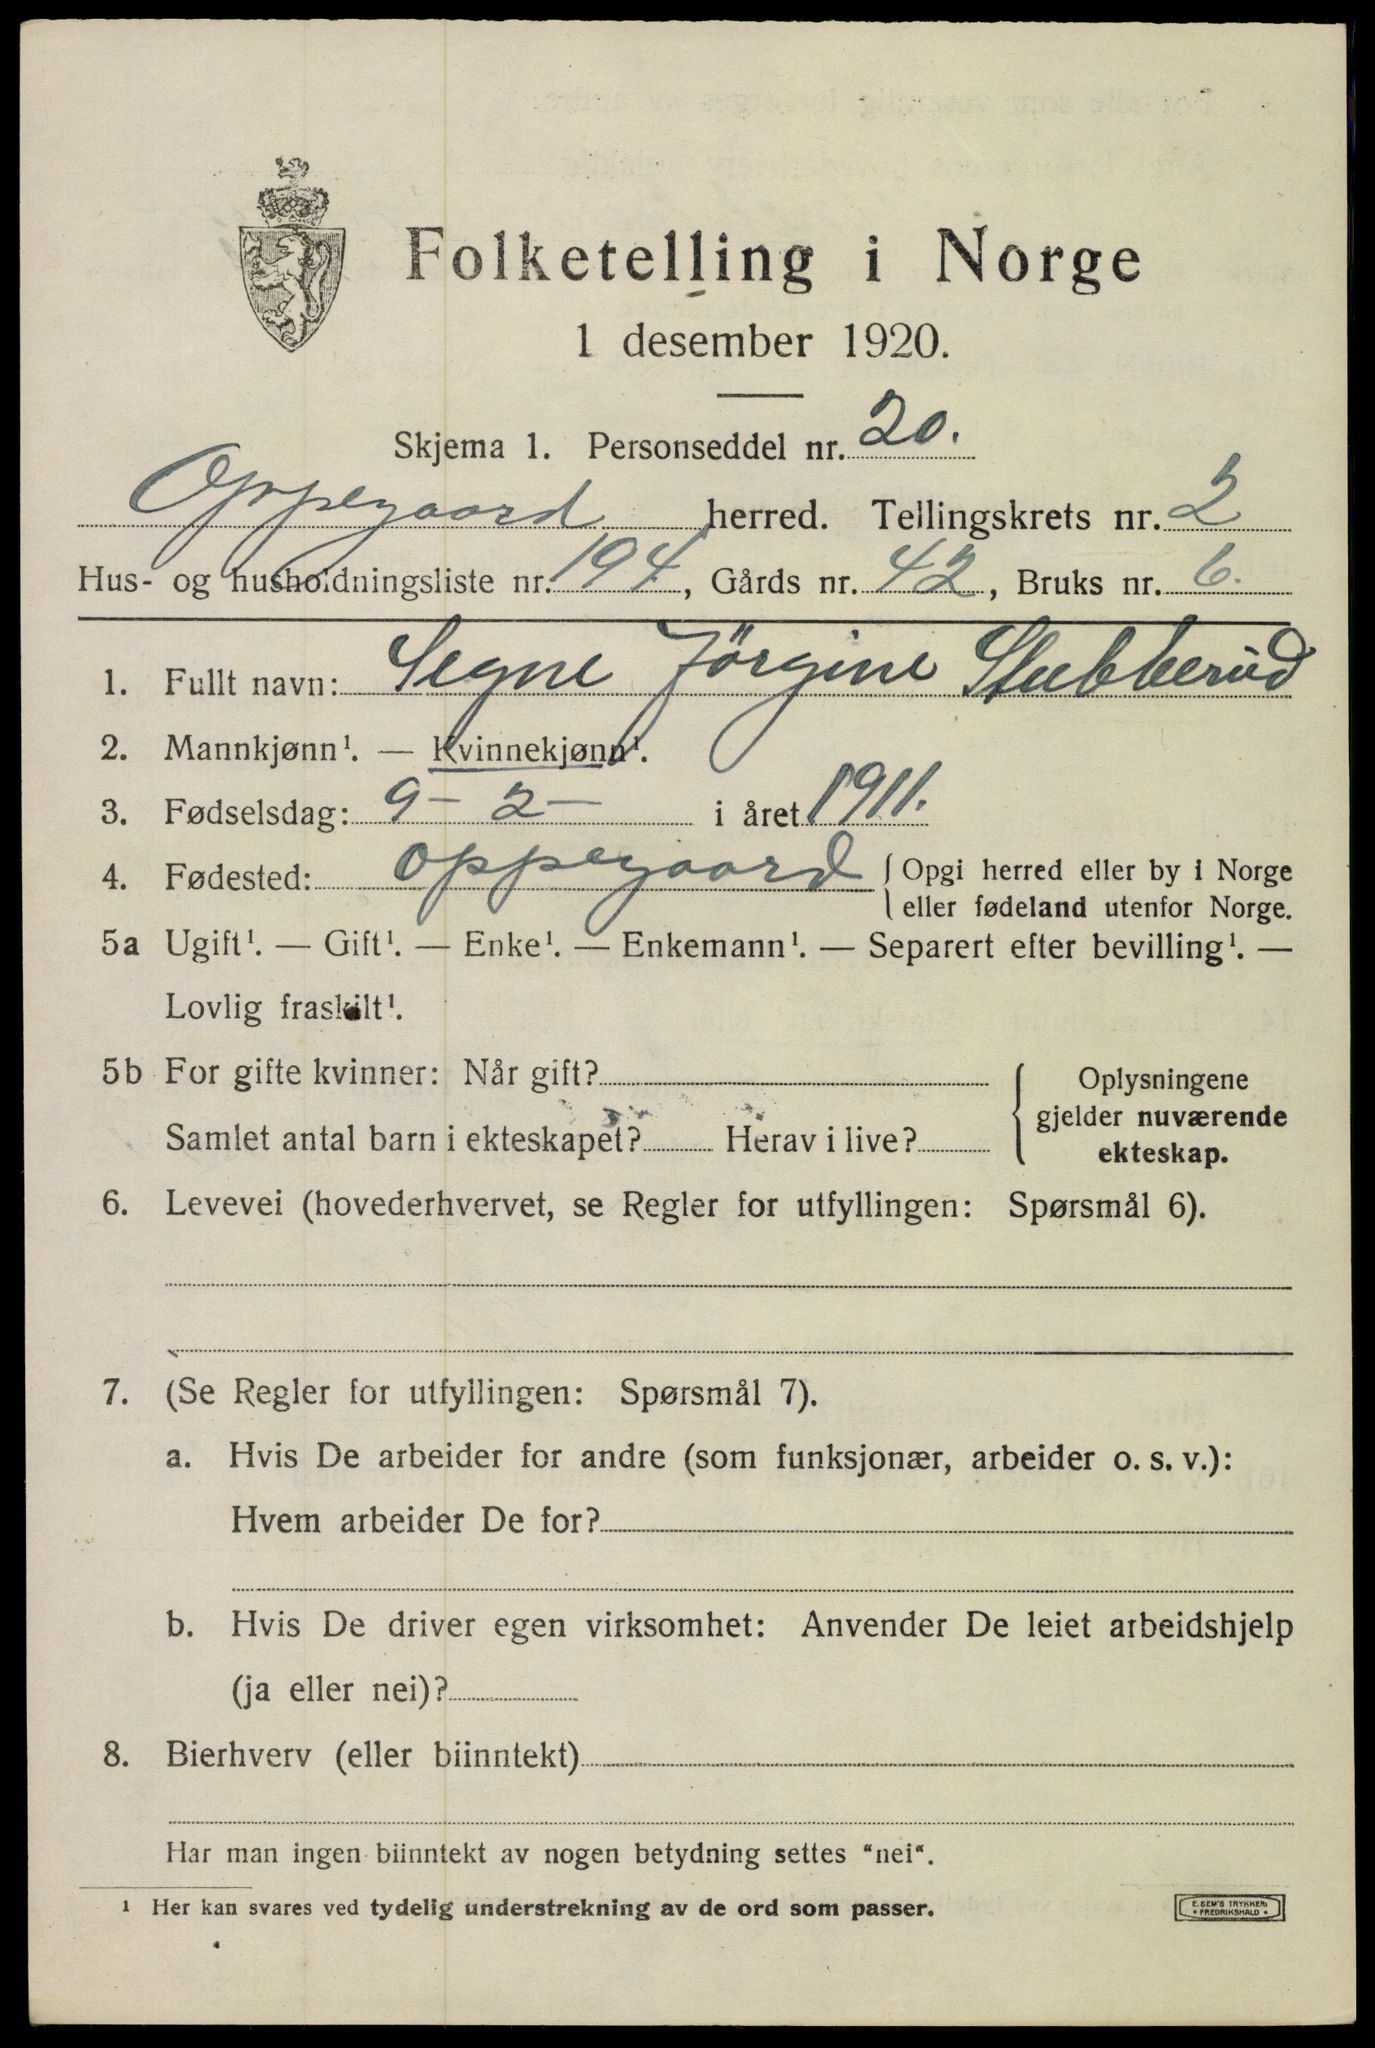 Folketelling i Norge
1 desember 1920.
Skjema 1. Personseddel nr. 20.
Oppegaard herred. Tellingskrets nr. 2
Hus- og husholdningsliste nr. 194, Gårds nr. 42, Bruks nr. 6.
1. Fullt navn: Segne Jörgine Stubberud
2. Mannkjønn¹. — Kvinnekjønn¹.
3. Fødselsdag: 9 - 2 - i året 1911.
4. Fødested: Oppegaard { Opgi herred eller by i Norge
eller fødeland utenfor Norge.
5a Ugift¹. — Gift¹. — Enke¹. — Enkemann¹. — Separert efter bevilling¹. —
Lovlig fraskilt¹.
5b For gifte kvinner: Når gift?
Samlet antal barn i ekteskapet? Herav i live?
{ Oplysningene
gjelder nuværende
ekteskap.
6. Levevei (hovederhvervet, se Regler for utfyllingen: Spørsmål 6).
7. (Se Regler for utfyllingen: Spørsmål 7).
a. Hvis De arbeider for andre (som funksjonær, arbeider o. s. v.):
Hvem arbeider De for?
b. Hvis De driver egen virksomhet: Anvender De leiet arbeidshjelp
(ja eller nei)?
8. Bierhverv (eller biinntekt)
Har man ingen biinntekt av nogen betydning settes "nei".
¹ Her kan svares ved tydelig understrekning av de ord som passer.
E. SEM'S TRYKKERI
* FREDRIKSHALD *